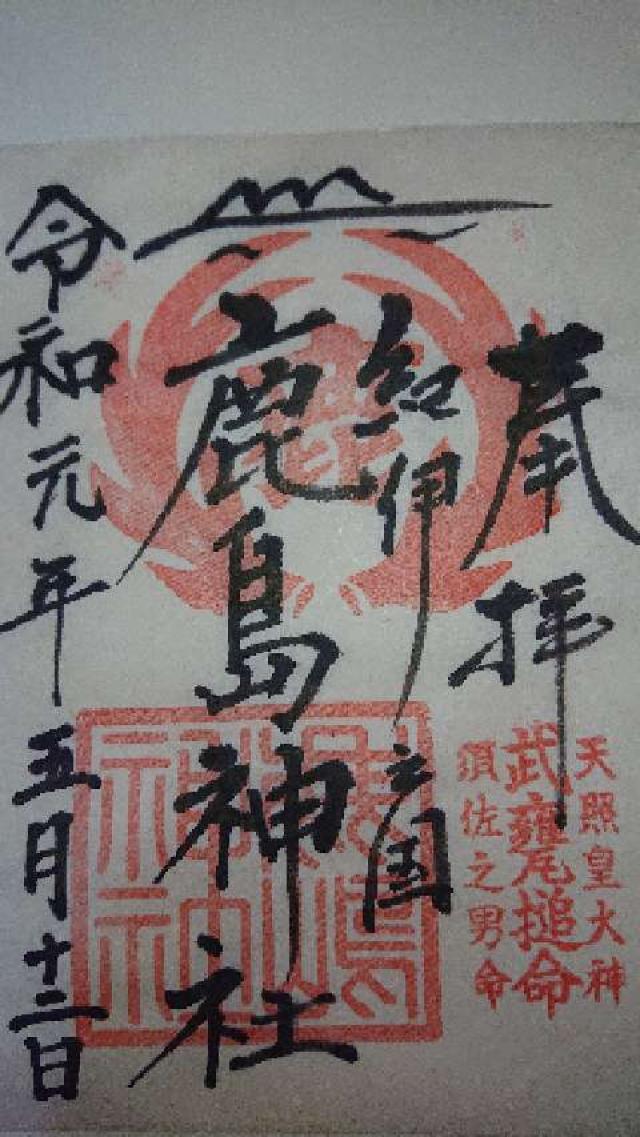 奉拝
天照皇大神
武甕槌命
須佐之男命
紀伊之国
鹿島神社
令和元年五月十二日